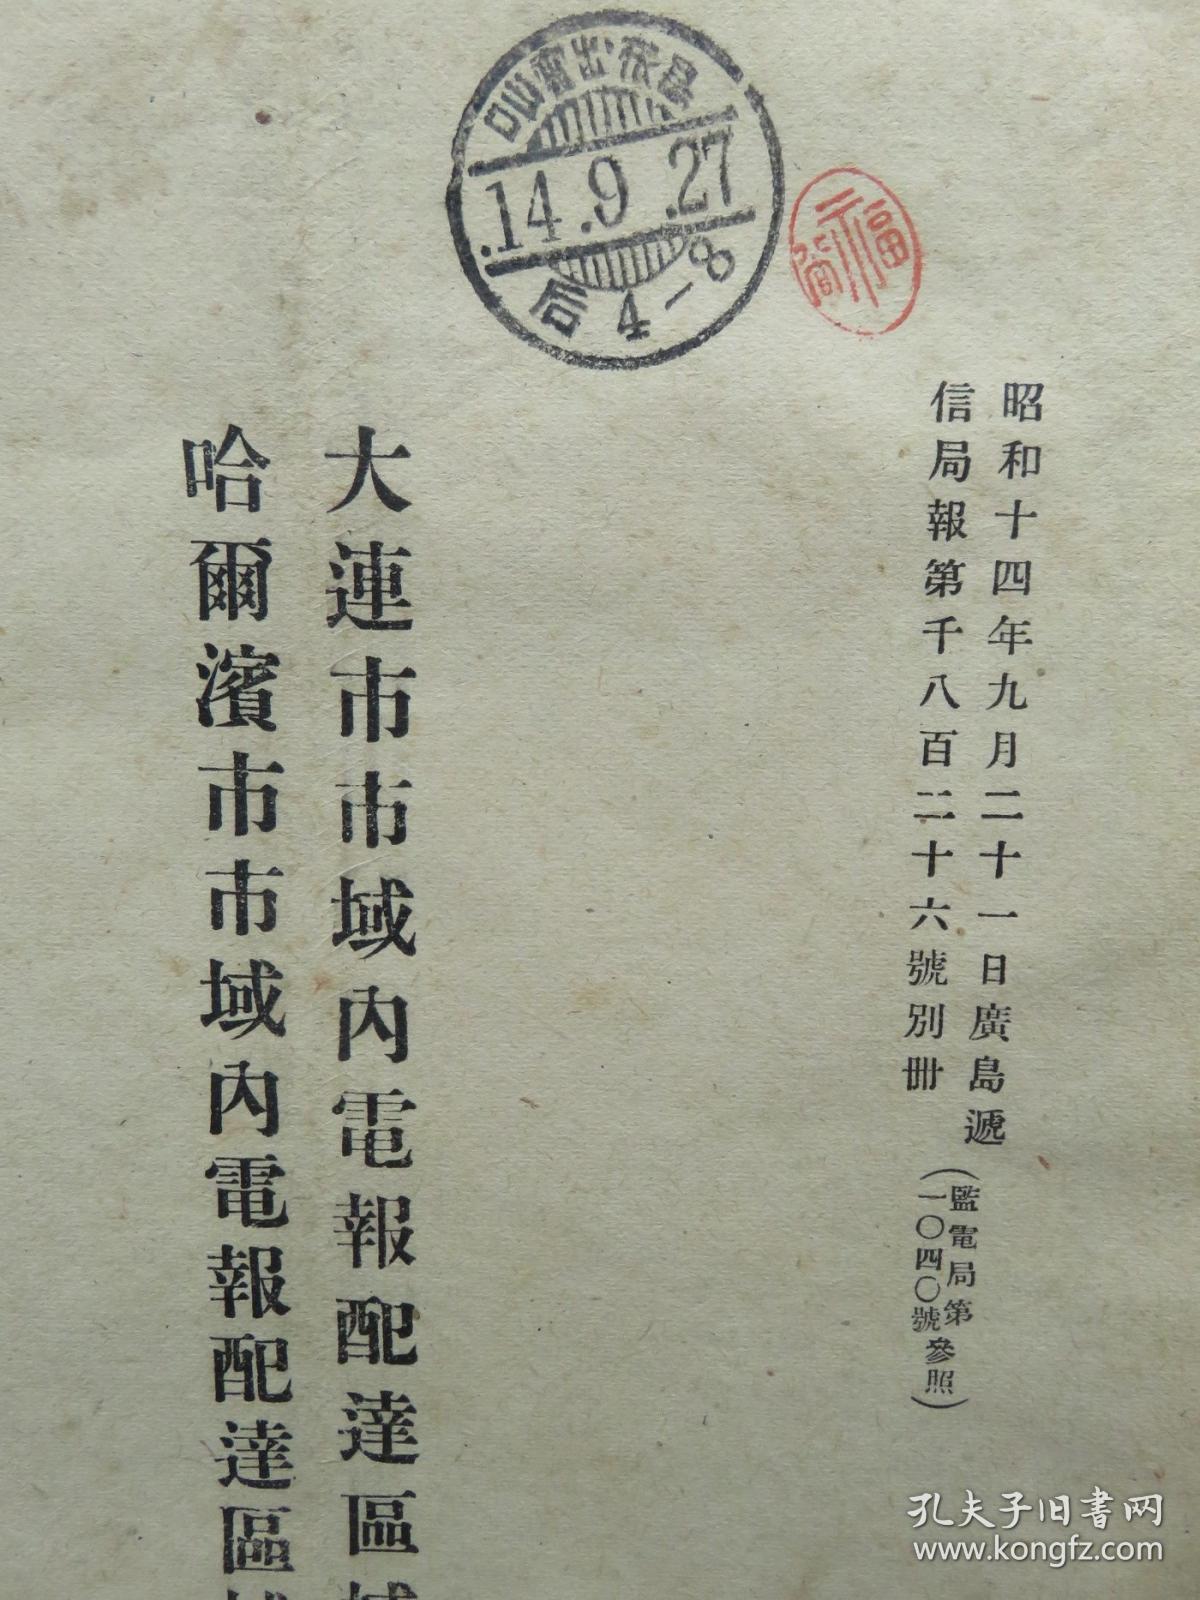 .14.9.27
后 4-8
昭和十四年九月二十一日廣島遞
信局報第千八百二十六號別冊
(監電局第
一〇四〇號參照)
大連市市域內電報配達區域
哈爾濱市市域內電報配達區域
孔夫子旧书网
www.kongfz.com